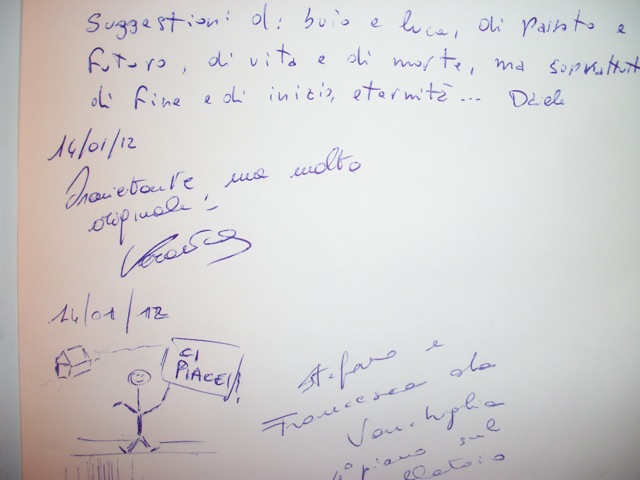 Suggestioni di: buio e luce, di passato e
futuro, di vita e di morte, ma soprattutto
di fine e di inizio, eternità...
14/01/12
Inquietante, ma molto
originale!
Veronica
14/01/12
CI
PIACE!!
Stefano e
Francesca da
Vanchiglia
4° piano sul